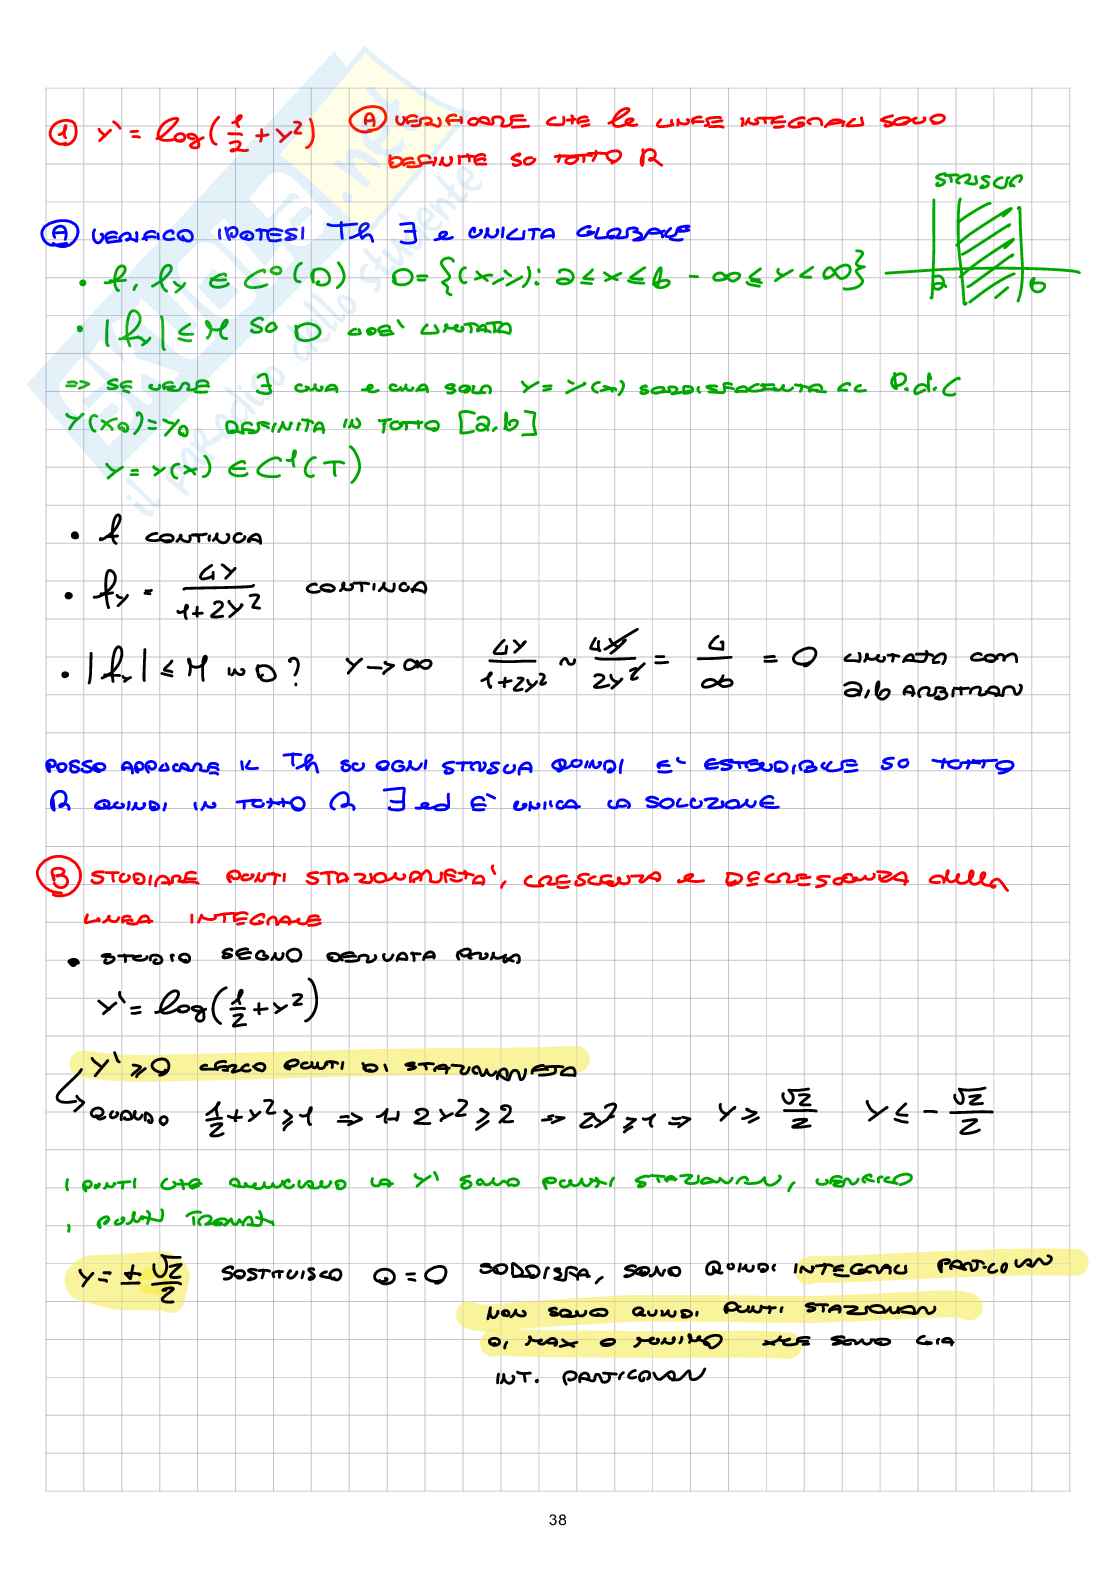 ① y' = log(1/2 + y²) Ⓐ VERIFICARE CHE le LINEE INTEGRALI SONO
DEFINITE SU TUTTO R
STRISCIA
Ⓐ VERIFICO IPOTESI Th ∃ e UNICITA GLOBALE
• f, fy ∈ C⁰(D) D = {(x,y): a ≤ x ≤ b - ∞ ≤ y < ∞}
a b
• |fy| ≤ M SU D CIOE' LIMITATA
=> SE VERE ∃ UNA e UNA SOLA y = y(x) SODDISFACENTE IL P.d.C
y(x₀) = y₀ DEFINITA IN TUTTO [a,b]
y = y(x) ∈ C¹(T)
• f CONTINUA
• fy = 4y / 1+2y² CONTINUA
• |fy| ≤ M in D? y → ∞ 4y / 1+2y² ~ 4y / 2y² = 4 / ∞ = 0 LIMITATA CON
a,b ARBITRARI
POSSO APPLICARE IL Th SU OGNI STRISCIA QUINDI E' ESTENDIBILE SU TUTTO
R QUINDI IN TUTTO R ∃ ed E' UNICA LA SOLUZIONE
Ⓑ STUDIARE PUNTI STAZIONARIETA', CRESCENZA e DECRESCENZA della
LINEA INTEGRALE
• STUDIO SEGNO DERIVATA PRIMA
y' = log(1/2 + y²)
y' ≥ 0 CERCO PUNTI DI STAZIONARIETA
QUANDO 1/2 + y² ≥ 1 => 1 + 2y² ≥ 2 => 2y² ≥ 1 => y ≥ √2/2 y ≤ - √2/2
I PUNTI CHE ANNULLANO LA y' SONO PUNTI STAZIONARI, VERIFICO
I PUNTI TROVATI
y = ± √2/2 SOSTITUISCO 0 = 0 SODDISFA, SONO QUINDI INTEGRALI PARTICOLARI
NON SONO QUINDI PUNTI STAZIONARI
DI MAX O MINIMO SONO GIA
INT. PARTICOLARI
38
SKUOLA.net
il paradiso dello studente